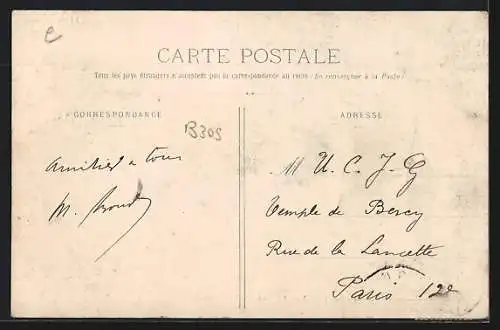 e
CARTE POSTALE
Tous les pays étrangers n'acceptent pas la correspondance au recto (Se renseigner à la Poste)
CORRESPONDANCE
ADRESSE
B309
Amitiés a tous
M.
M U. C. J. G
Temple de Bercy
Rue de la Lancette
Paris 12e